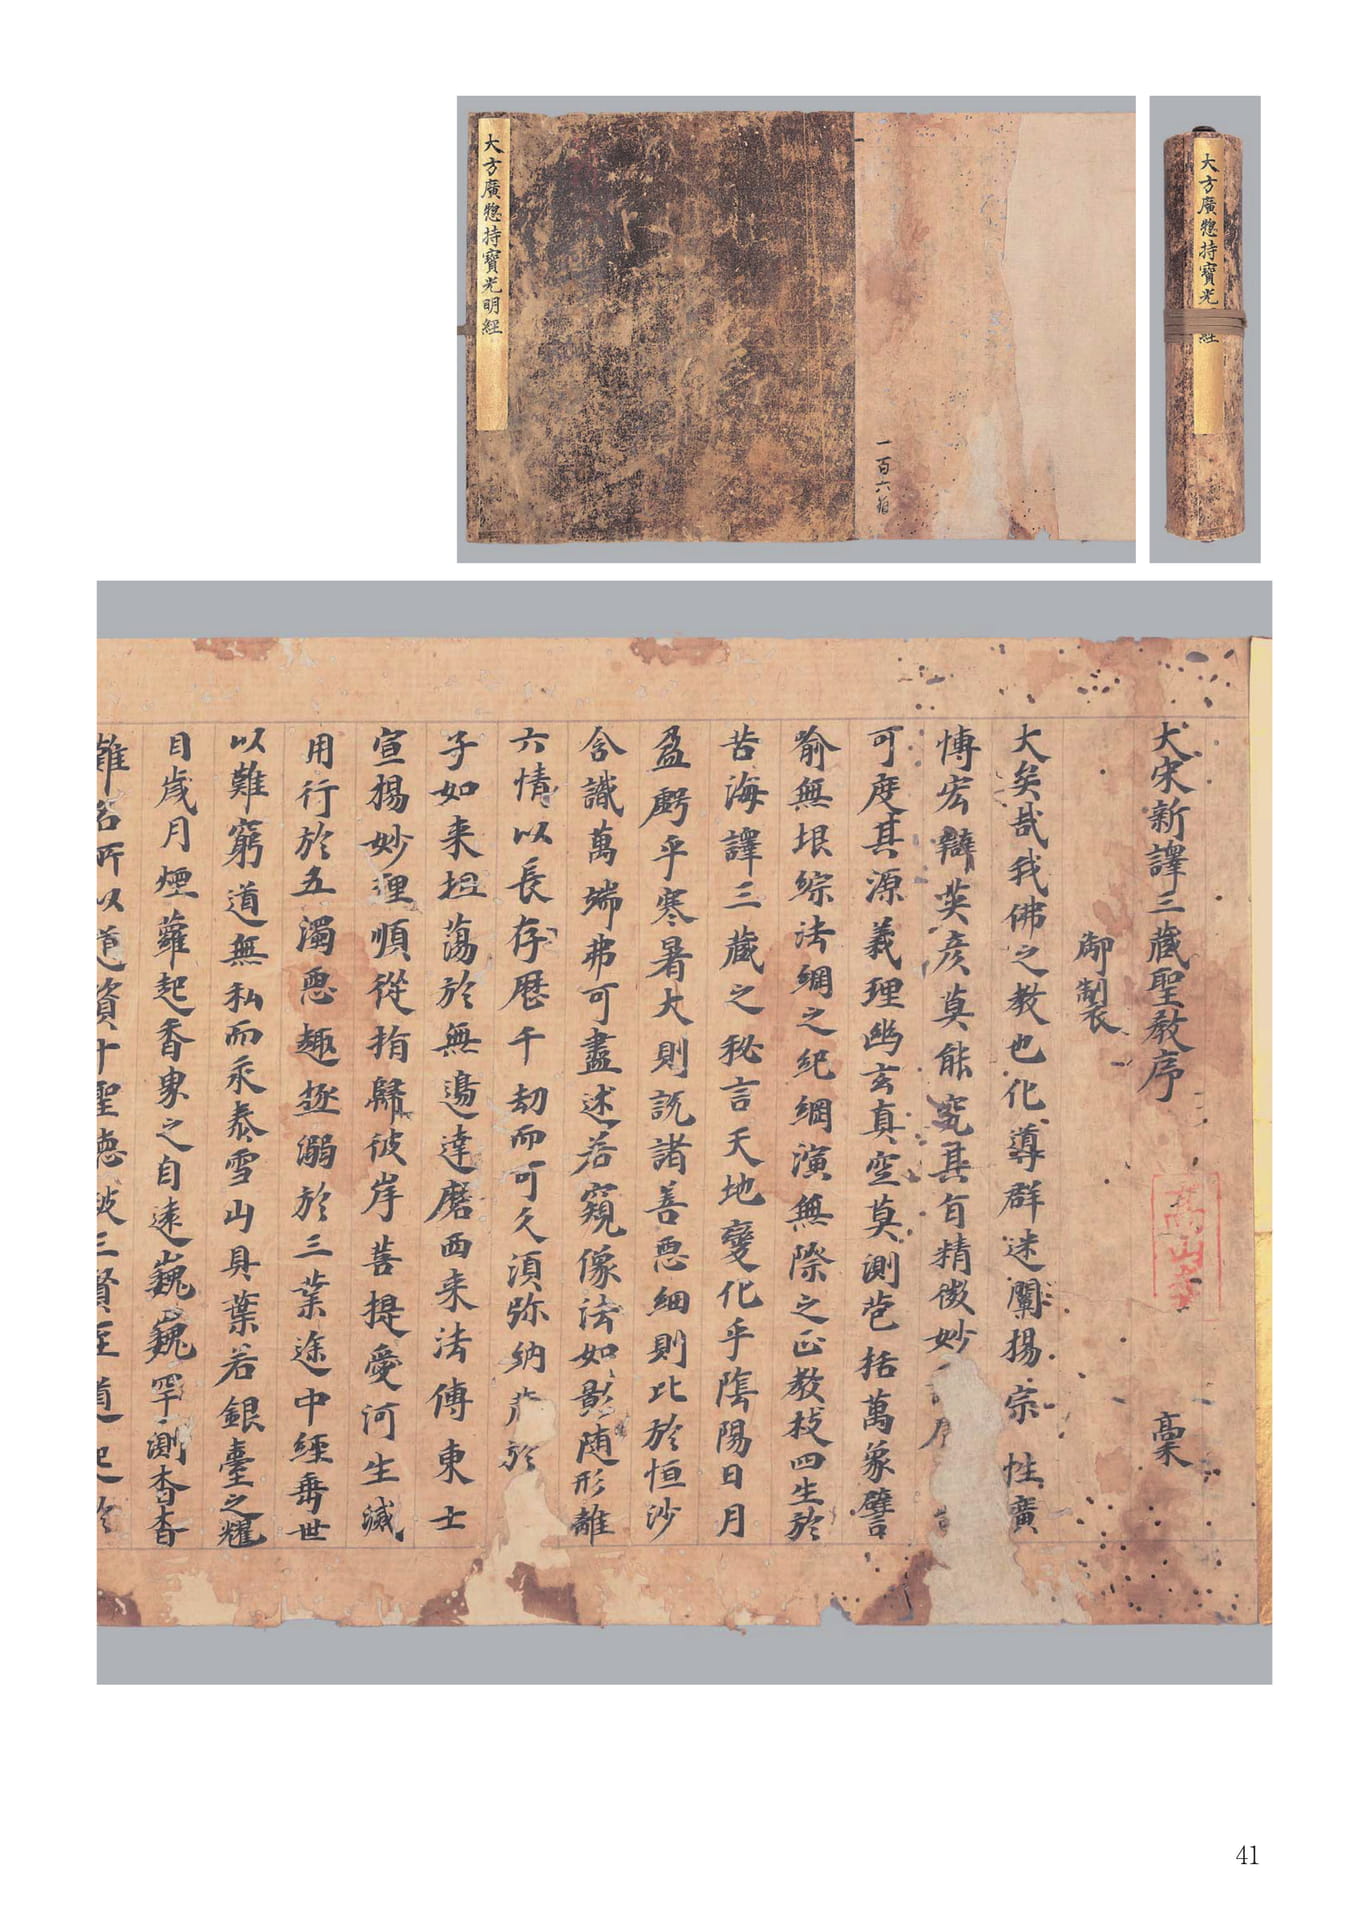 大方廣惣持寳光明經
一百六
大方廣惣持寳光
經
大宋新譯三藏聖教序
高山寺
藁
御製
大矣哉我佛之教也化導群迷闡揚宗性廣
博宏辯英彦莫能究其旨精微妙
可度其源義理幽玄真空莫測苞括萬象譬
喻無垠綜法網之紀綱演無際之正教拔四生於
苦海譯三藏之秘言天地變化乎陰陽日月
盈虧乎寒暑大則說諸善惡細則比於恒沙
含識萬端弗可盡述若窺像法如影随形離
六情以長存歷千劫而可久湏弥納於
子如来坦蕩於無邊達磨西来法傳東土
宣揚妙理順從指歸彼岸菩提愛河生滅
用行於五濁惡趣拯溺於三業途中經垂世
以難窮道無私而永泰雪山貝葉若銀臺之耀
目歲月煙蘿起香界之自遠巍巍罕測杳杳
難名所以道資十聖德被三賢至道起於
41